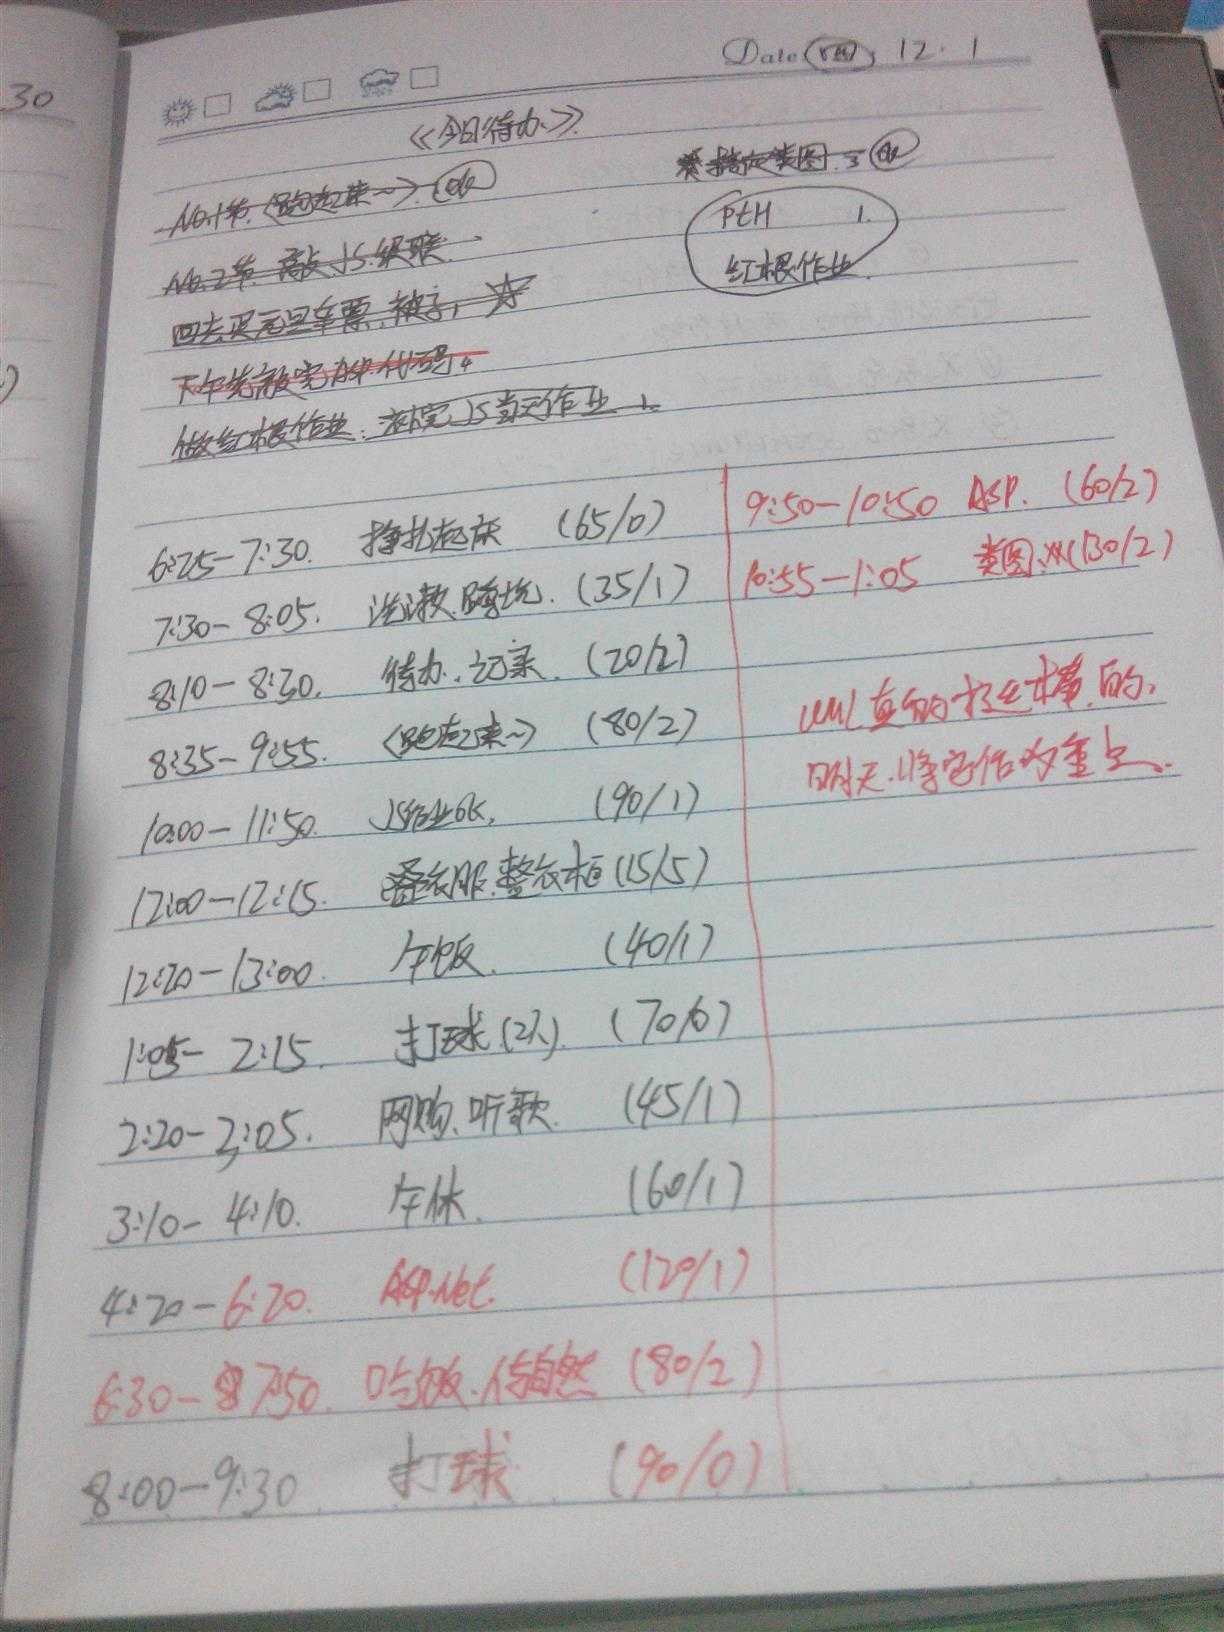 30
Date 周四 12.1
《今日待办》
No.1节.《跑起来~》. ok
No.2节. 敲 JS.级联.
回去买元旦车票、被子，☆
下午先敲完ASP.代码。
做红根作业. 补完JS当天作业
搞定类图. ok
PtH 1.
红根作业.
6:25-7:30. 挣扎起床 (65/0)
7:30-8:05. 洗漱.蹲坑. (35/1)
8:10-8:30. 待办.记录. (20/2)
8:35-9:55. 《跑起来~》 (80/2)
10:00-11:50. JS作业ok. (90/1)
12:00-12:15. 衣服.整衣柜 (15/5)
12:20-13:00. 午饭. (40/1)
1:05-2:15. 打球.(2人). (70/0)
2:20-3:05. 网购、听歌. (45/1)
3:10-4:10. 午休. (60/1)
4:20-6:20. ASP.Net. (120/1)
6:30-7:50. 吃饭. (80/2)
8:00-9:30 打球 (90/0)
9:50-10:50 ASP. (60/2)
10:55-1:05 类图. (130/2)
UML真的 的.
明天.将它作为重点.